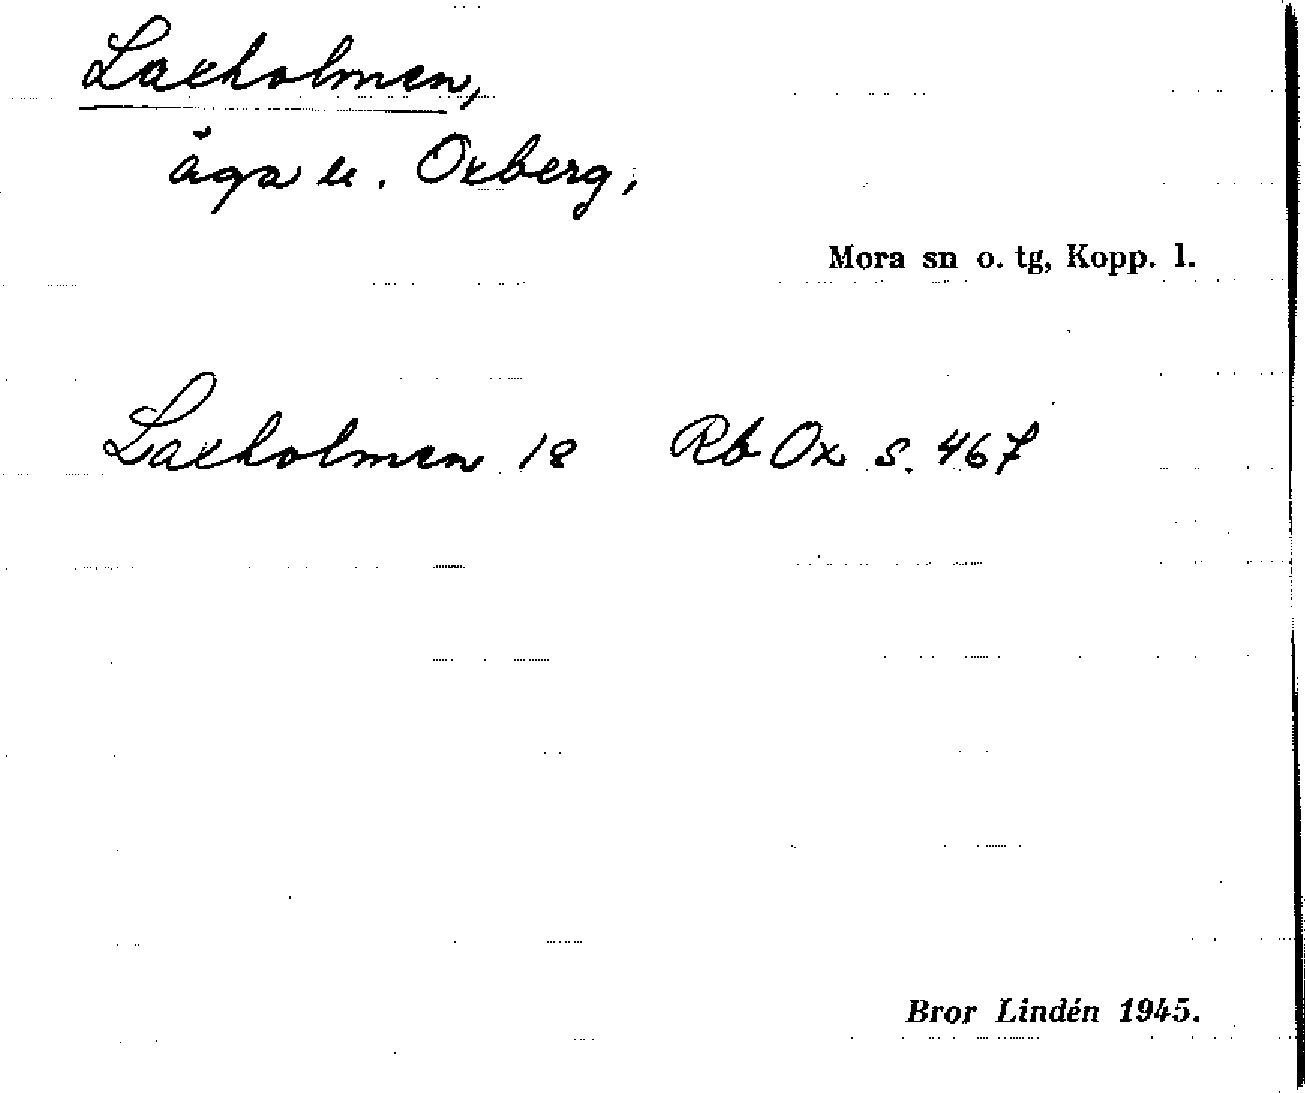 Laxholmen,
äga u. Oxberg,
Mora sn o. tg, Kopp. l.
Laxholmen 18 Rb Ox s. 467
Bror Lindén 1945.